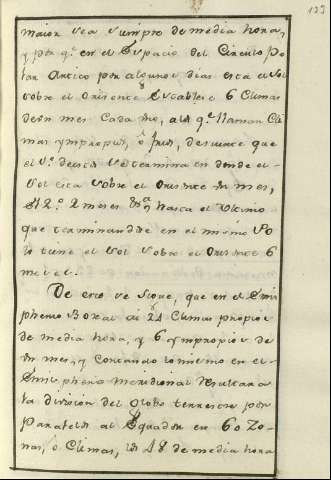 123
maior sea siempre de media hora,
y por q.e en el Espacio del Circulo Po-
lar Artico por algunos dias esta el Sol
sobre el Orisonte Establese 6 Climas
de un mes Cada uno, a los q.e llaman Cli-
mas ympropios, ò de suerte que
el 1.o de estos se termina en donde el
Sol esta sobre el Orisonte un mes,
El 2.o 2 meses hasta el Ultimo
que terminandose en el mismo Po-
lo tiene el Sol sobre el Orisonte 6
meses.
De esto se sigue, que en el Emis-
pherio Boreal ai 24 Climas propios
de media hora, y 6 ympropios de
un mes, y Contando lo mismo en el
Emispherio Meridional Resultara
la division del Globo terrestre por
Paralelos al Equador en 60 Zo-
nas, o Climas, los 48 de media hora